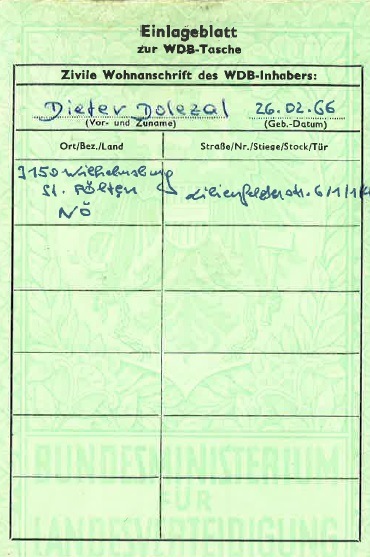 Einlageblatt
zur WDB-Tasche
Zivile Wohnanschrift des WDB-Inhabers:
Dieter Dolezal 26.02.66
(Vor- und Zuname) (Geb.-Datum)
Ort/Bez./Land Straße/Nr./Stiege/Stock/Tür
3150 Wilhelmsburg
St. Pölten Lilienfelderstr. 6/1/1
NÖ
BUNDESMINISTERIUM
FÜR
LANDESVERTEIDIGUNG